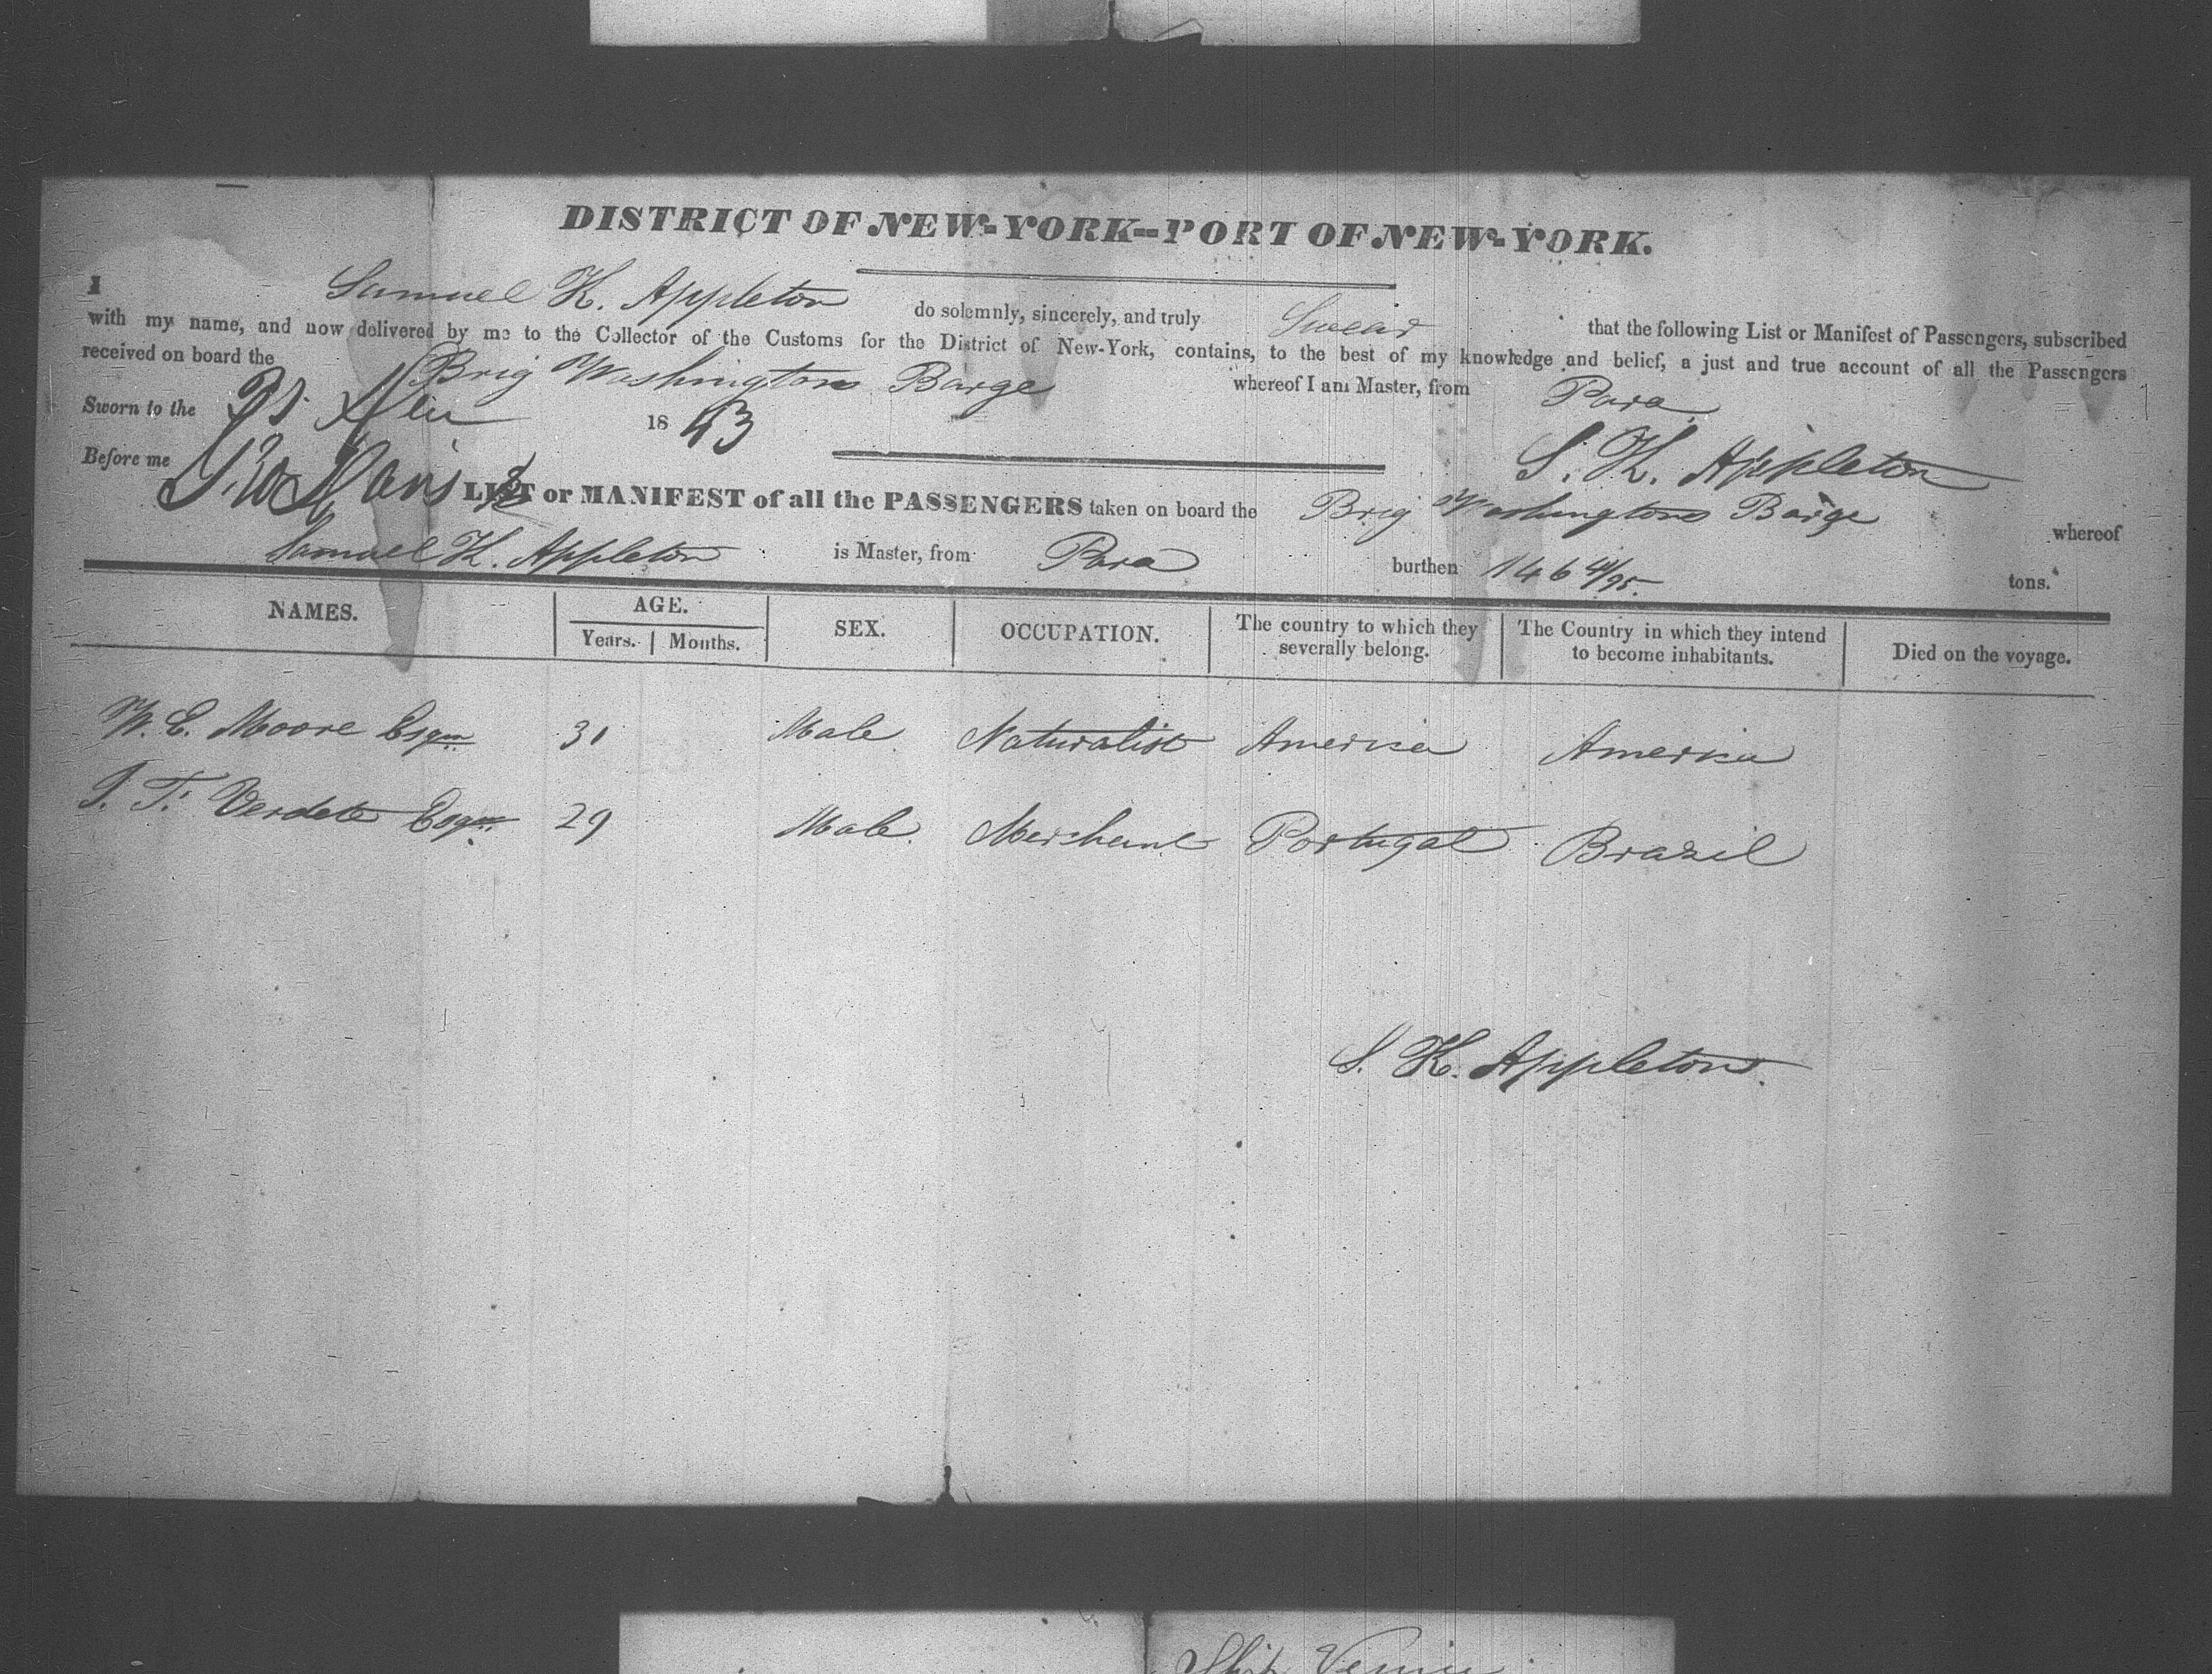 DISTRICT OF NEW-YORK--PORT OF NEW-YORK.
I Samuel K. Appleton do solemnly, sincerely, and truly Swear that the following List or Manifest of Passengers, subscribed
with my name, and now delivered by me to the Collector of the Customs for the District of New-York, contains, to the best of my knowledge and belief, a just and true account of all the Passengers
received on board the Brig Washingtons Barge whereof I am Master, from Para
Sworn to the 1843
S. K. Appleton
Before me
LIST or MANIFEST of all the PASSENGERS taken on board the Brig Washingtons Barge whereof
Samuel K. Appleton is Master, from Para burthen 146 tons.
NAMES. AGE. Years. Months. SEX. OCCUPATION. The country to which they severally belong. The Country in which they intend to become inhabitants. Died on the voyage.
W. E. Moore Esqr 31 Male Naturalist America America
29 Male. Merchant Portugal Brazil
S. K. Appleton.
Ship